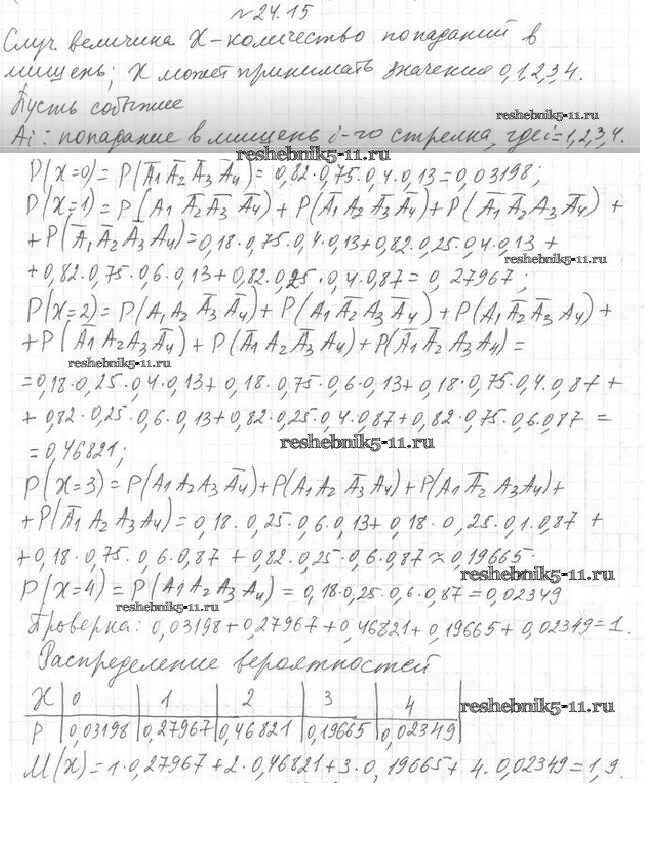 №24.15
Случ величина X-количество попаданий в
мишень; X может принимать значения 0,1,2,3,4.
Пусть событие
Ai: попадание в мишень i-го стрелка, где i=1,2,3,4.
reshebnik5-11.ru
P(X=0)=P(A̅1 A̅2 A̅3 A̅4)=0,82·0,75·0,4·0,13=0,03198;
P(X=1)=P(A1 A̅2 A̅3 A̅4)+P(A̅1 A2 A̅3 A̅4)+P(A̅1 A̅2 A3 A̅4)+
+P(A̅1 A̅2 A̅3 A4)=0,18·0,75·0,4·0,13+0,82·0,25·0,4·0,13+
reshebnik5-11.ru
+0,82·0,75·0,6·0,13+0,82·0,25·0,4·0,87=0,27967;
P(X=2)=P(A1 A2 A̅3 A̅4)+P(A1 A̅2 A3 A̅4)+P(A1 A̅2 A̅3 A4)+
+P(A̅1 A2 A3 A̅4)+P(A̅1 A2 A̅3 A4)+P(A̅1 A̅2 A3 A4)=
reshebnik5-11.ru
=0,18·0,25·0,4·0,13+0,18·0,75·0,6·0,13+0,18·0,75·0,4·0,87+
+0,82·0,25·0,6·0,13+0,82·0,25·0,4·0,87+0,82·0,75·0,6·0,87=
=0,46821;
reshebnik5-11.ru
P(X=3)=P(A1 A2 A3 A̅4)+P(A1 A2 A̅3 A4)+P(A1 A̅2 A3 A4)+
+P(A̅1 A2 A3 A4)=0,18·0,25·0,6·0,13+0,18·0,25·0,1·0,87+
+0,18·0,75·0,6·0,87+0,82·0,25·0,6·0,87≈0,19665.
reshebnik5-11.ru
P(X=4)=P(A1 A2 A3 A4)=0,18·0,25·0,6·0,87=0,02349
reshebnik5-11.ru
Проверка: 0,03198+0,27967+0,46821+0,19665+0,02349=1.
Распределение вероятностей
X 0 1 2 3 4
reshebnik5-11.ru
P 0,03198 0,27967 0,46821 0,19665 0,02349
M(X)=1·0,27967+2·0,46821+3·0,19665+4·0,02349=1,9.